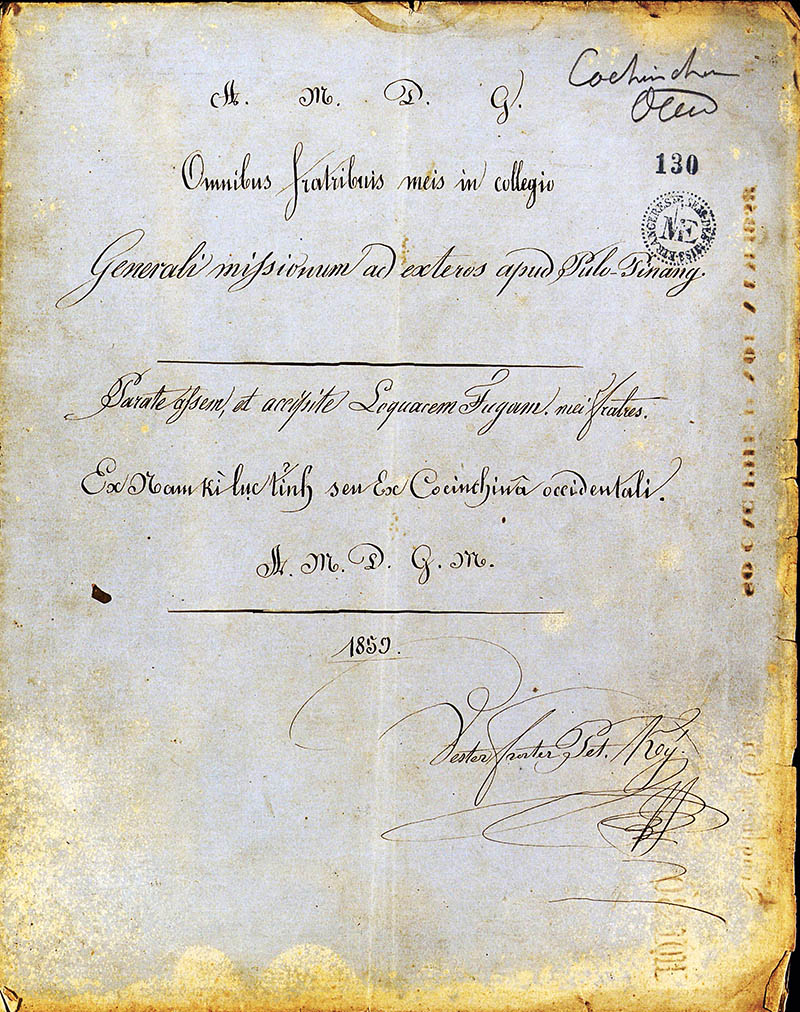 Cochinchin
Occid
A. M. D. G.
130
Omnibus fratribuis meis in collegio
ME
Generali missionum ad exteros apud Pulo-Pinang.
Parate assem, et accipite Loquacem Fugam. mei fratres.
Ex Nam kì lục tỉnh seu Ex Cocinchinâ occidentali.
A. M. D. G. M.
1859.
Vester frater Pet. Key.